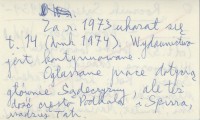 Za r. 1973 ukazał się
t. 14 (druk 1974). Wydawnictwo
jest kontynuowane.
Ogłaszane prace dotyczą
głównie Sądecczyzny, ale też
dość często Podhala i Spisza,
nadto Tatr.